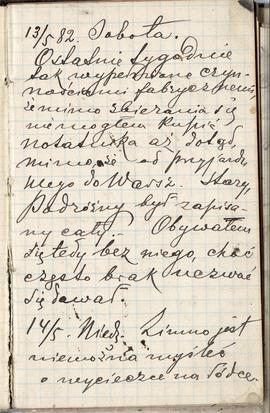 13/5 82. Sobota.
Ostatnie tygodnie
tak wypełnione czyn-
nościami fabrycznemi,
że mimo zbierania się
nie mogłem kupić
notatnika aż dotąd,
mimo, że od przyjazdu
mego do Warsz. Stary
Podróżny był zapisa-
ny cały. Obywałem
się tedy bez niego, choć
często brak uczuwać
się dawał.
14/5. Niedz. Zimno jest
niemożna myśleć
o wycieczce na łódce